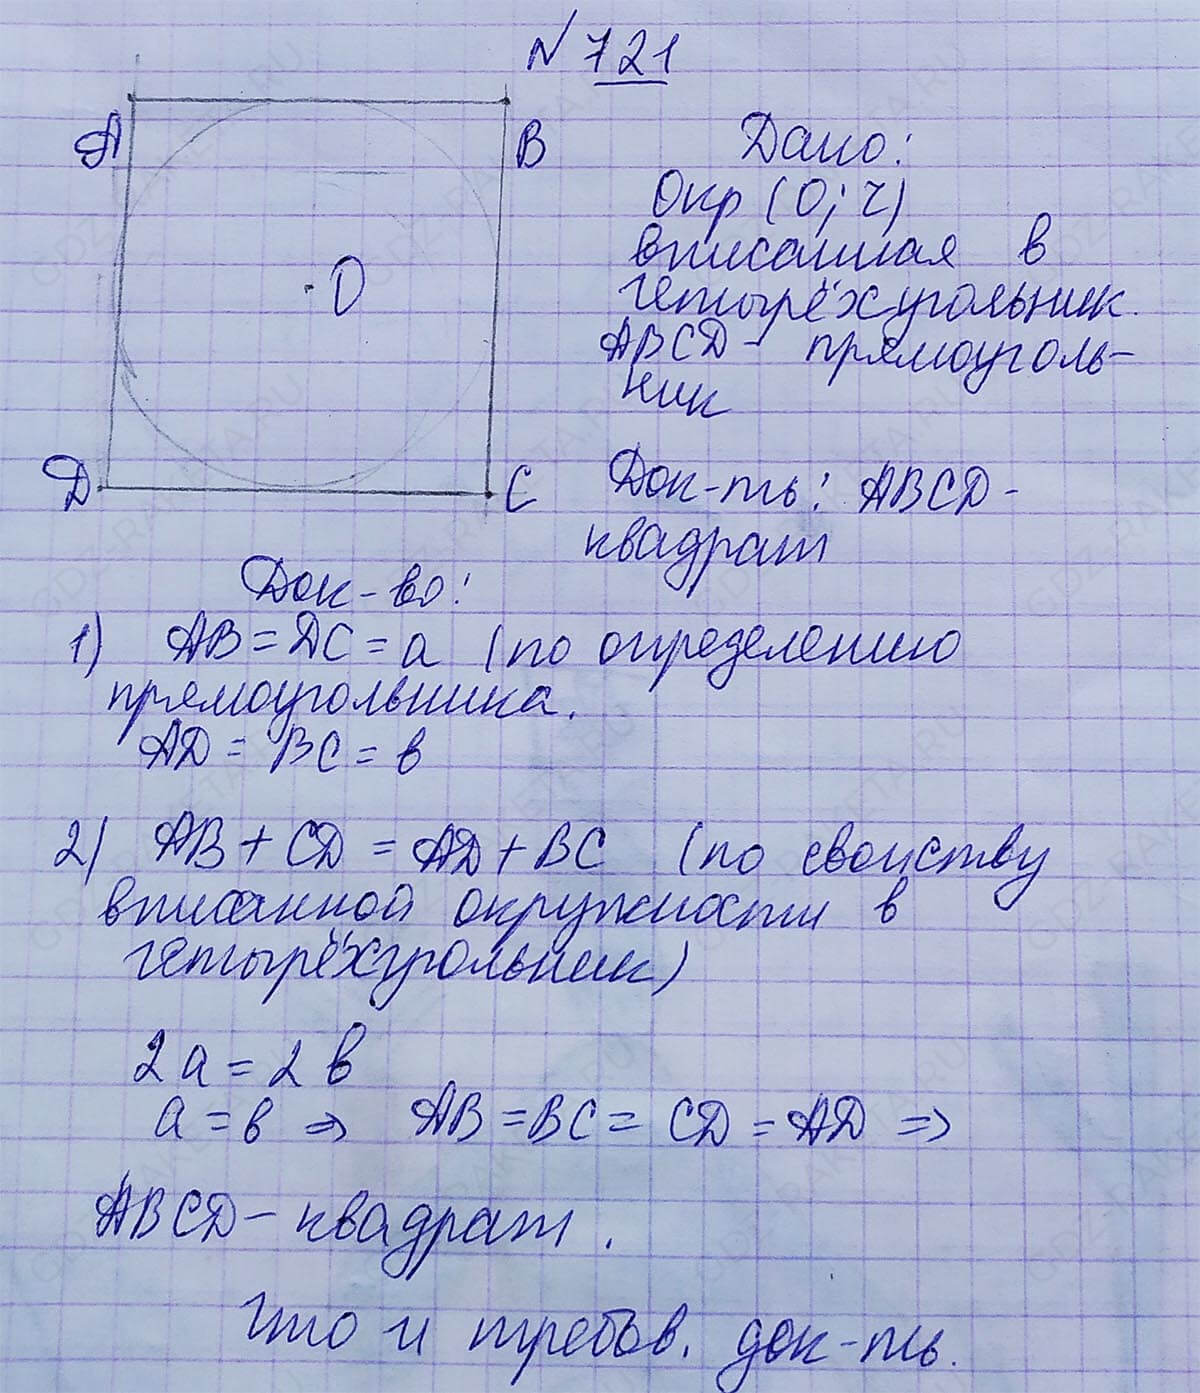 N 721
A
B
Дано:
Окр (O; r)
вписанная в
четырёхугольник.
ABCD - прямоуголь-
ник
O
D
C
Док-ть: ABCD -
квадрат
Док-во:
1) AB = DC = a (по определению
прямоугольника.
AD = BC = в
2) AB + CD = AD + BC (по свойству
вписанной окружности в
четырёхугольник)
2a = 2в
a = в ⇒ AB = BC = CD = AD ⇒
ABCD - квадрат.
Что и требов. док-ть.